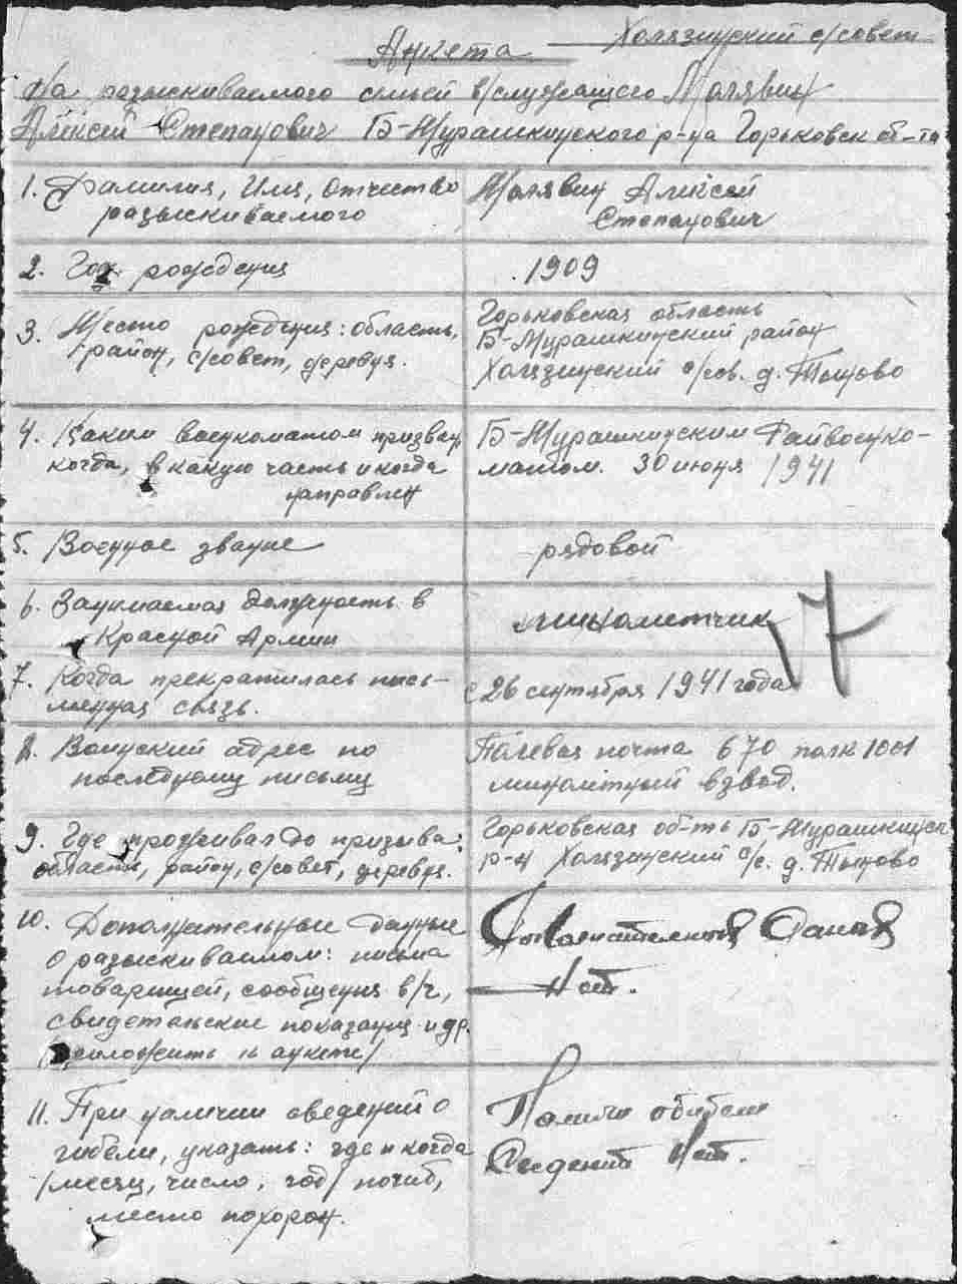 Анкета Холязинский с/совет
На разыскиваемого семьей в/служащего Малявин
Алексей Степанович Б-Мурашкинского р-на Горьковск об-ти
1. Фамилия, Имя, Отчество Малявин Алексей
разыскиваемого Степанович
2. Год рождения 1909
3. Место рождения: область, Горьковская область
район, с/совет, деревня. Б-Мурашкинский район
Холязинский с/сов. д.
4. Каким военкоматом призван, Б-Мурашкинским Райвоенко-
когда, в какую часть и когда матом. 30 июня 1941
направлен
5. Военное звание рядовой
6. Занимаемая должность в минометчик
Красной Армии
7. Когда прекратилась пись- с 26 сентября 1941 года
менная связь.
8. Воинский адрес по Полевая почта 670 полк 1001
последнему письму минометный взвод.
9. Где проживал до призыва: Горьковская об-ть Б-Мурашкинск
область, район, с/совет, деревня. р-н Холязинский с/с. д.
10. Дополнительные данные
о разыскиваемом: письма Нет.
товарищей, сообщения в/ч,
свидетельские показания и др.
/приложить к анкете/
11. При наличии сведений о
гибели, указать: где и когда Нет.
/месяц, число, год/ погиб,
место похорон.